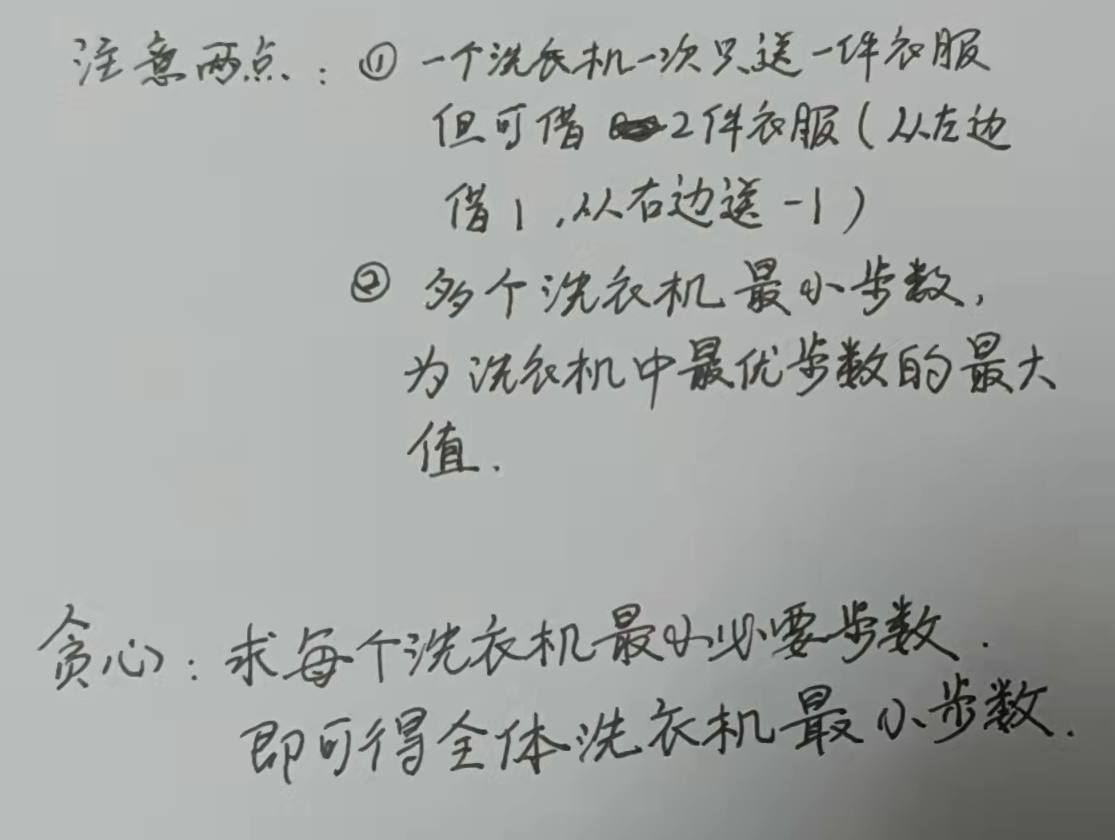 注意两点：① 一个洗衣机一次只送一件衣服
但可借 2件衣服（从左边
借1，从右边送-1）
② 多个洗衣机最小步数，
为洗衣机中最优步数的最大
值．
贪心：求每个洗衣机最小必要步数．
即可得全体洗衣机最小步数．